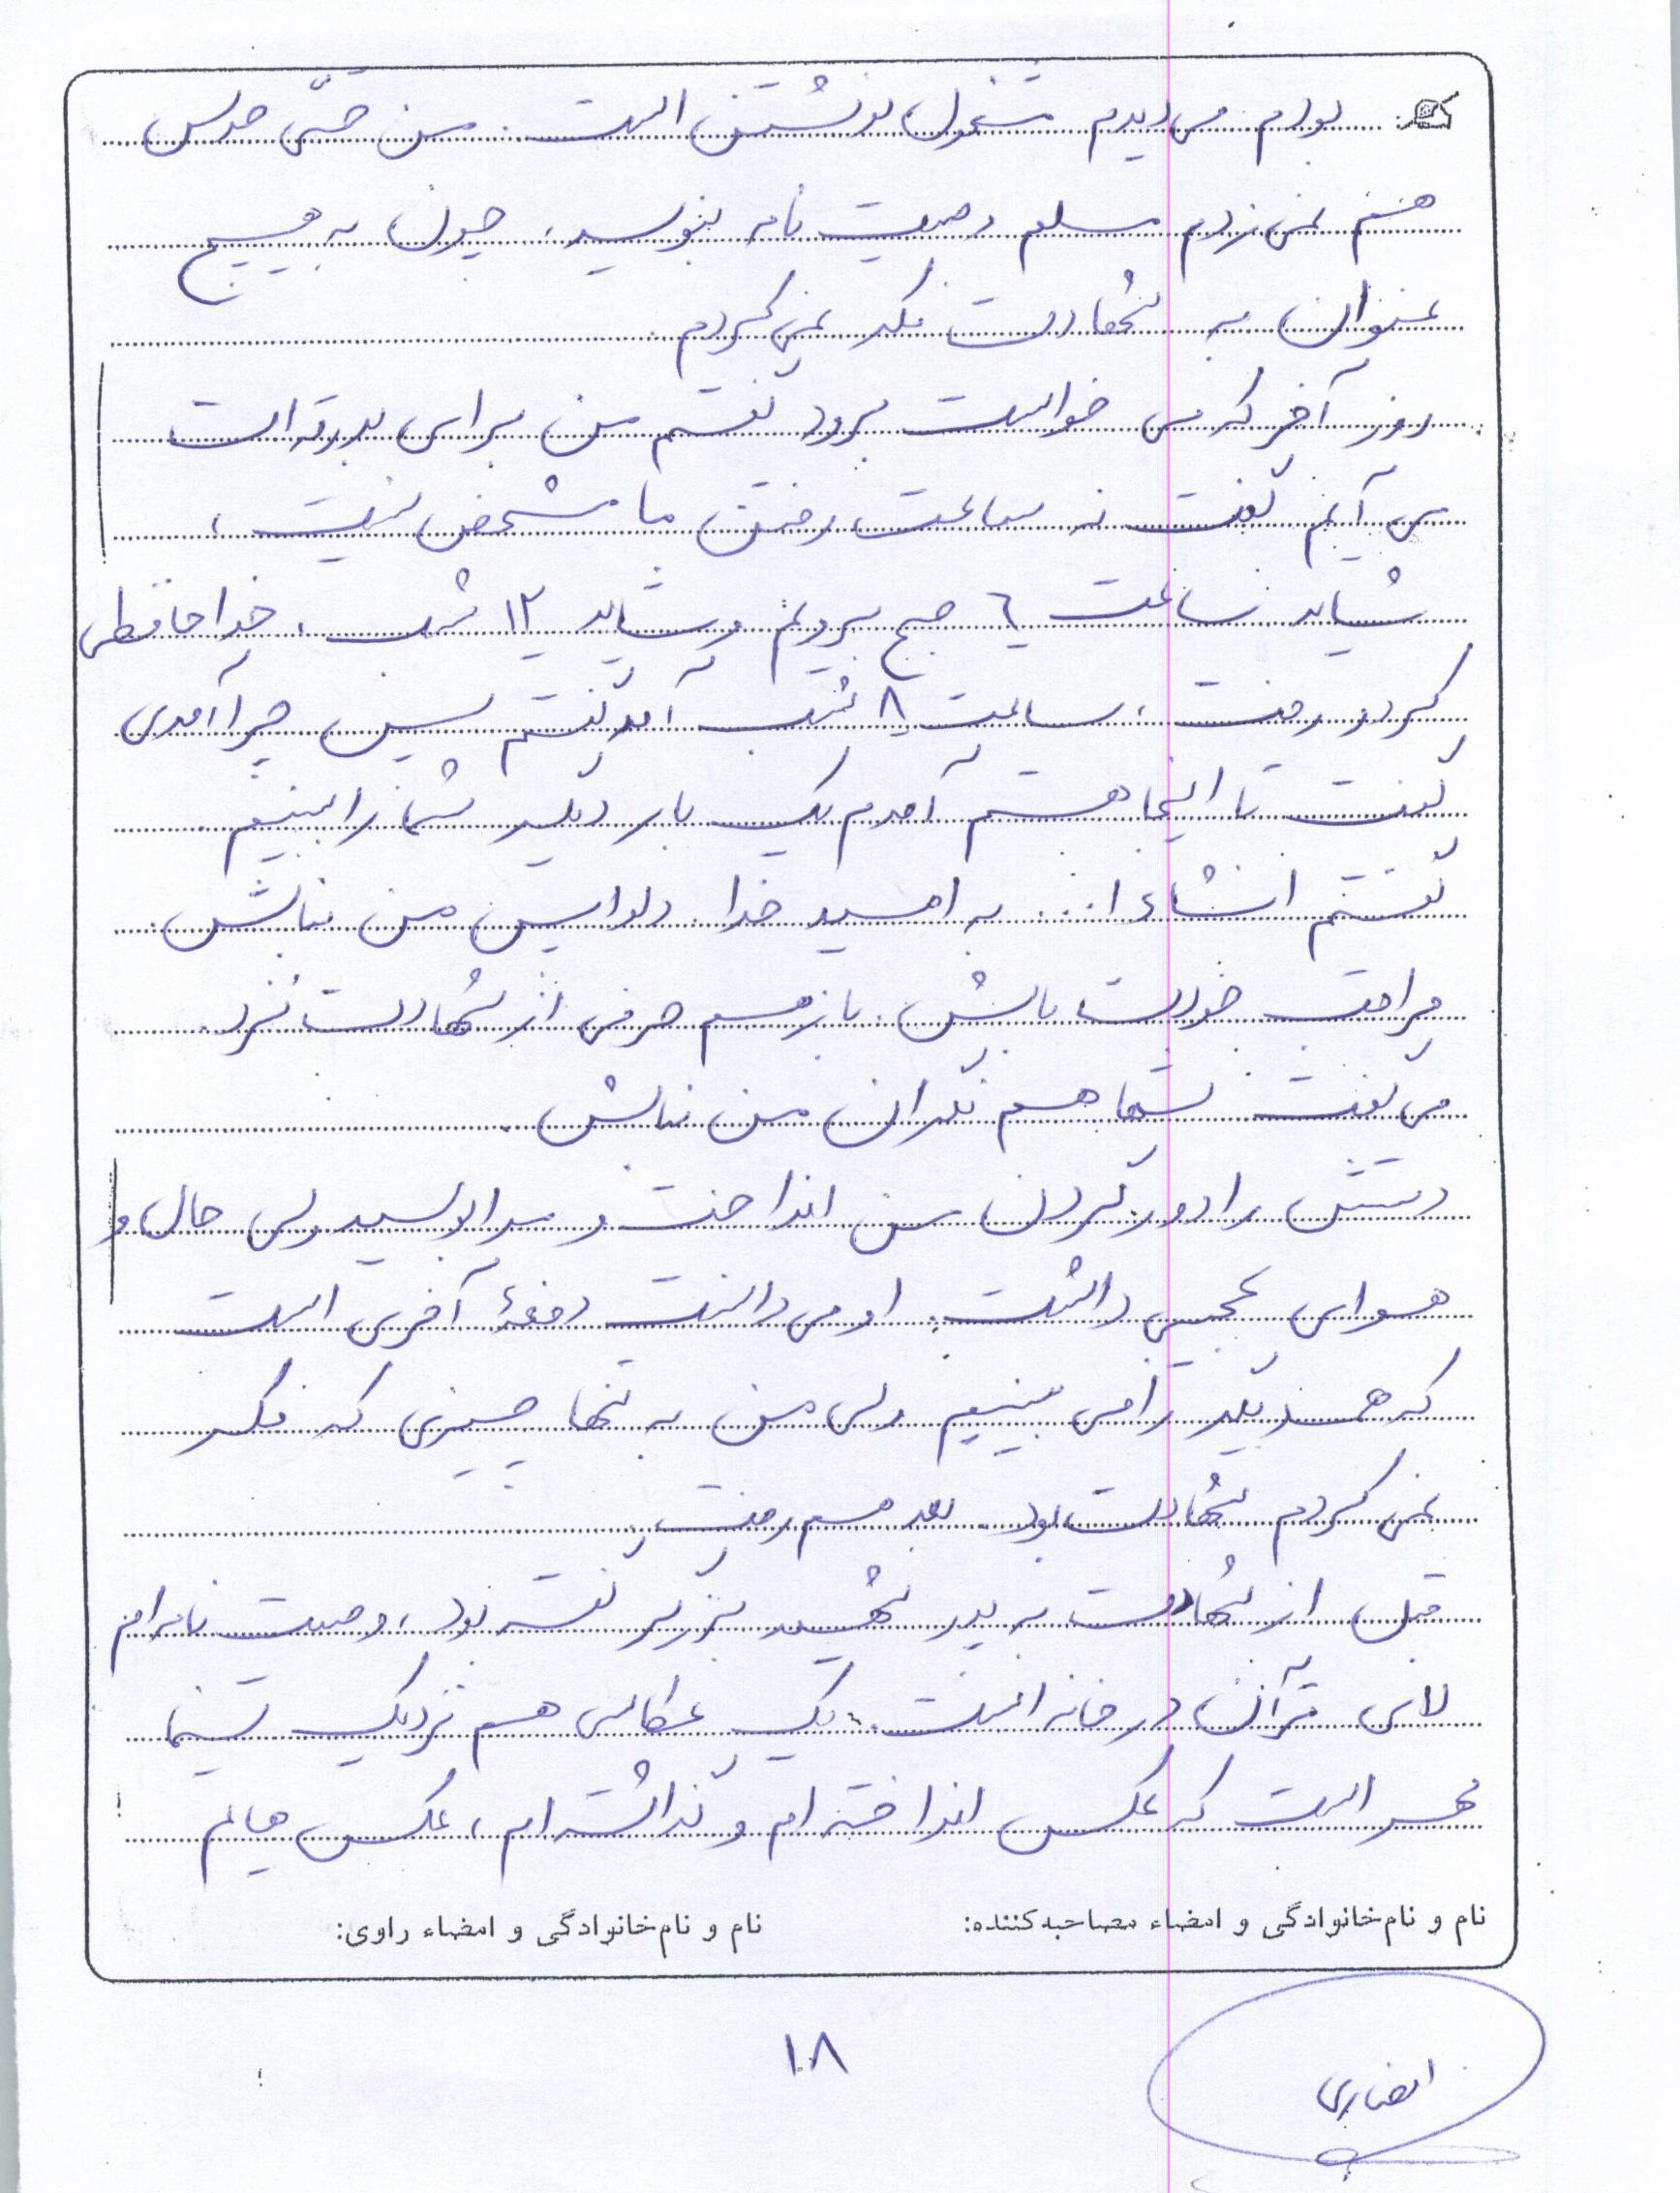 بودم می دیدم مشغول نوشتن است. من حتّی حدس
هم نمی زدم مسلم وصیت نامه بنویسد، چون به هیچ
عنوان به شهادت فکر نمی کردم.
روز آخر که می خواست برود گفتم من برای بدرقه ات
می آیم گفت نه ساعت رفتن ما مشخص نیست،
شاید ساعت ٦ صبح برویم و شاید ۱۲ شب، خداحافظی
کرد و رفت، ساعت ۸ شب آمد گفتم پس چرا آمدی
گفت تا اینجا هستم آمدم یک بار دیگر شما را ببینم.
گفتم انشاء ا... به امید خدا دلواپس من نباش.
مراقب خودت باش. باز هم حرفی از شهادت نزد.
می گفت شما هم نگران من نباش.
دستش را دور گردن من انداخت و مرا بوسید ولی حال و
هوای عجیبی داشت. او می دانست دفعهٔ آخری است
که همدیگر را می بینیم ولی من به تنها چیزی که فکر
نمی کردم شهادت بود. بعد هم رفت.
قبل از شهادت به پدر شهید گفته بود، وصیت نامه ام
لای قرآن در خانه است. یک عکاسی هم نزدیک سینما
است که عکس انداخته ام و گذاشته ام، عکس هایم
نام و نام‌خانوادگی و امضاء مصاحبه‌کننده: نام و نام‌خانوادگی و امضاء راوی:
۱۸
انصاری